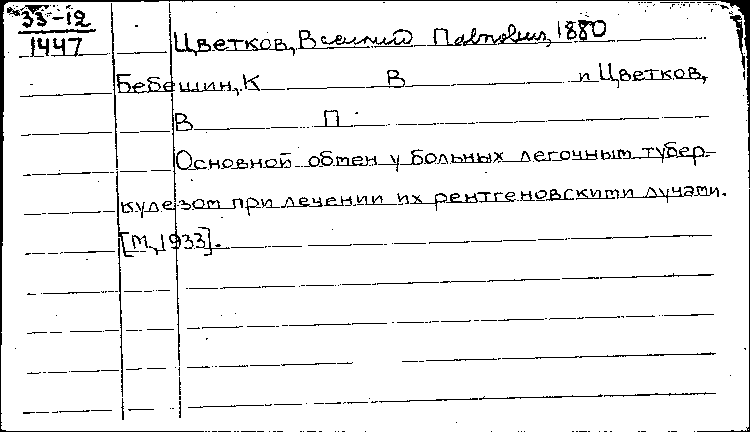 33-12
1447
Цветков, Василий Павлович, 1880
Бебешин, К В и Цветков,
В П
Основной обмен у больных легочным тубер-
кулезом при лечении их рентгеновскими лучами.
[М, 1933].